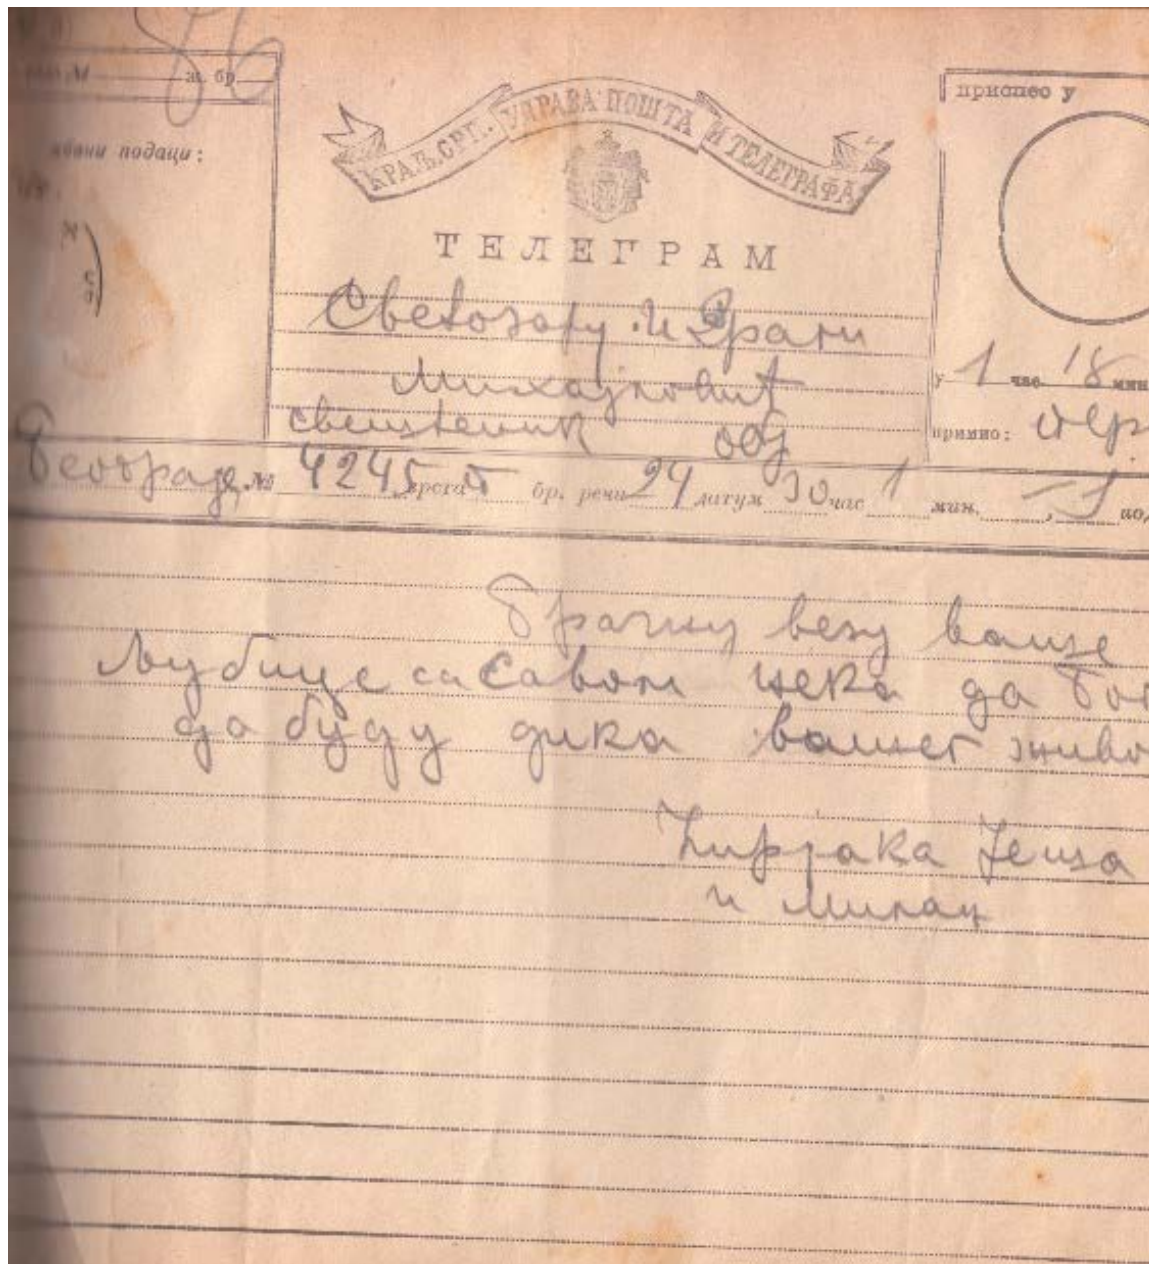 86
ж. бр.
приспео у
КРАЉ. СРП. УПРАВА ПОШТА И ТЕЛЕГРАФА
подаци:
ТЕЛЕГРАМ
Светозару и
Михајловић
свештеник
у 1 час 18 мин
примио:
Београд № 4245 врста бр. речи 24 датум 30 час 1 мин.
Брачну везу ваше
Љубице са Савом нека да Бог
да буду дика вашег живо
Ћирјака Јеша
и Милан